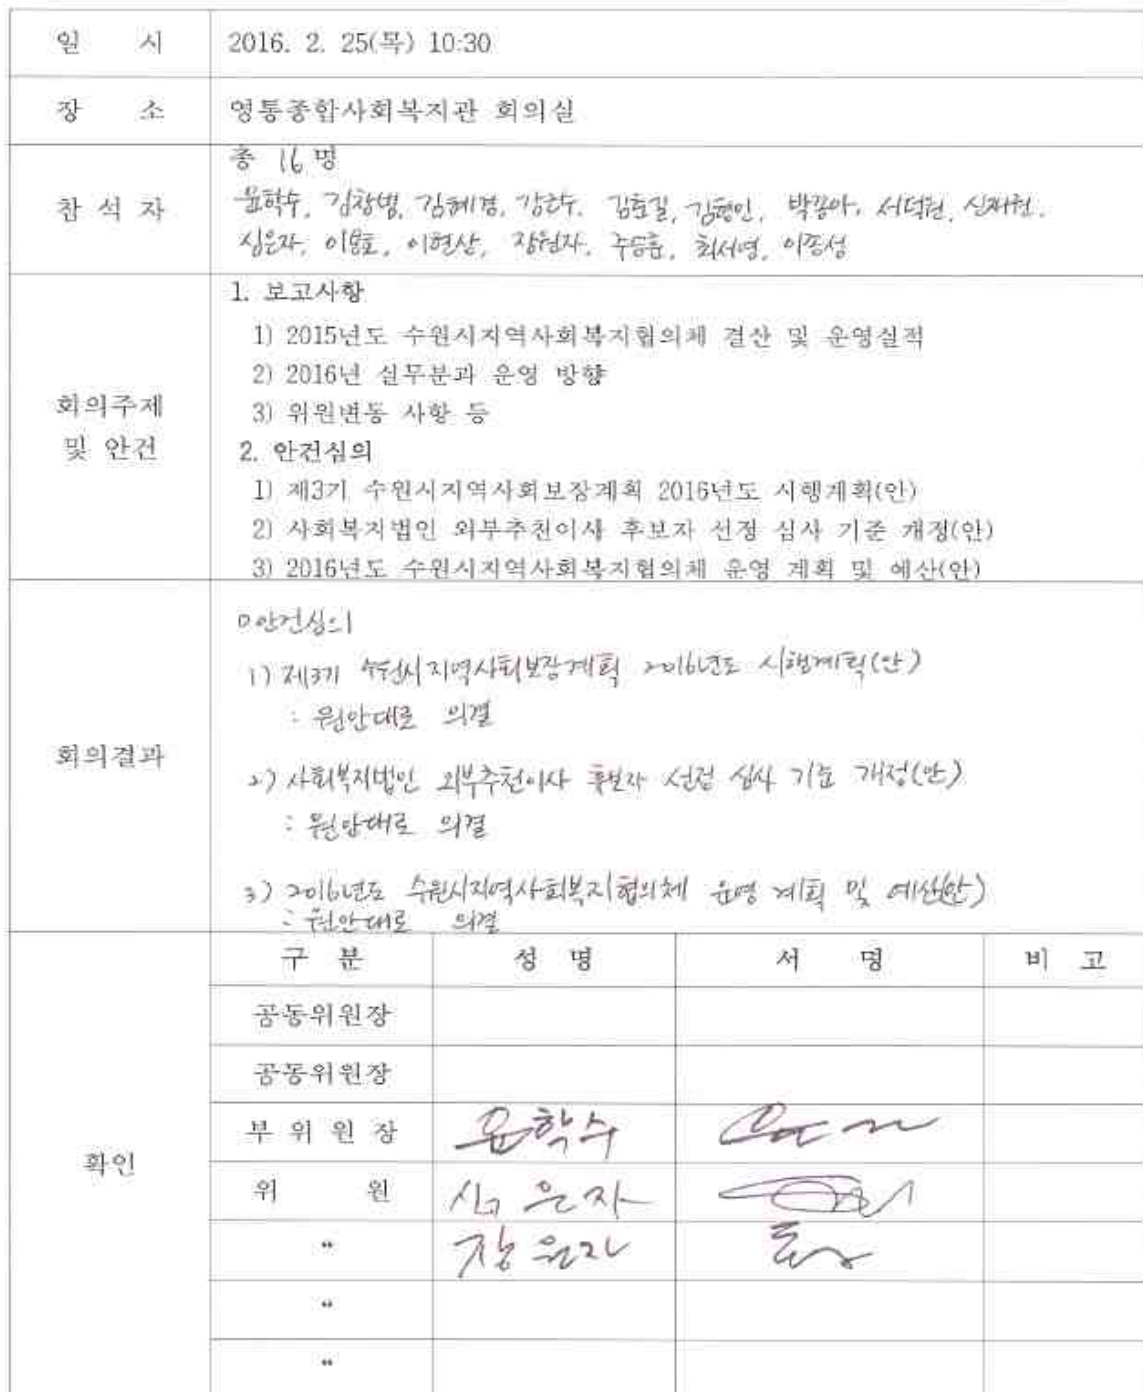 일 시 2016. 2. 25(목) 10:30
장 소 영통종합사회복지관 회의실
참 석 자
총 16 명
윤학수, 김창범, 김혜경, 강한수, 김춘길, 김형인, 서덕원, 신재헌,
심은자, 이용호, 이현상, 장원자, 주승훈, 최서영, 이종성
회의주제
및 안건
1. 보고사항
1) 2015년도 수원시지역사회복지협의체 결산 및 운영실적
2) 2016년 실무분과 운영 방향
3) 위원변동 사항 등
2. 안건심의
1) 제3기 수원시지역사회보장계획 2016년도 시행계획(안)
2) 사회복지법인 외부추천이사 후보자 선정 심사 기준 개정(안)
3) 2016년도 수원시지역사회복지협의체 운영 계획 및 예산(안)
회의결과
□안건심의
1) 제3기 수원시지역사회보장계획 2016년도 시행계획(안)
: 원안대로 의결
2) 사회복지법인 외부추천이사 후보자 선정 심사 기준 개정(안)
: 원안대로 의결
3) 2016년도 수원시지역사회복지협의체 운영 계획 및 예산(안)
: 원안대로 의결
확인
구 분 성 명 서 명 비 고
공동위원장
공동위원장
부 위 원 장 윤학수
위 원 심은자
“ 장원자
“
“